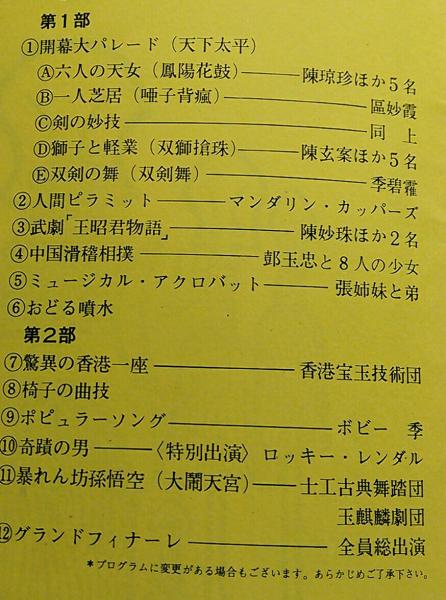 第1部
①開幕大パレード（天下太平）
Ⓐ六人の天女（鳳陽花鼓）――陳琼珍ほか5名
Ⓑ一人芝居（唖子背瘋）――區妙霞
Ⓒ剣の妙技――同 上
Ⓓ獅子と軽業（双獅搶珠）――陳玄案ほか5名
Ⓔ双剣の舞（双剣舞）――季碧霞
②人間ピラミット――マンダリン・カッパーズ
③武劇「王昭君物語」――陳妙珠ほか2名
④中国滑稽相撲――彭玉忠と8人の少女
⑤ミュージカル・アクロバット――張姉妹と弟
⑥おどる噴水
第2部
⑦驚異の香港一座――香港宝玉技術団
⑧椅子の曲技
⑨ポピュラーソング――ボビー 季
⑩奇蹟の男――〈特別出演〉ロッキー・レンダル
⑪暴れん坊孫悟空（大鬧天宮）――士工古典舞踏団
玉麒麟劇団
⑫グランドフィナーレ――全員総出演
＊プログラムに変更がある場合もございます。あらかじめご了承下さい。